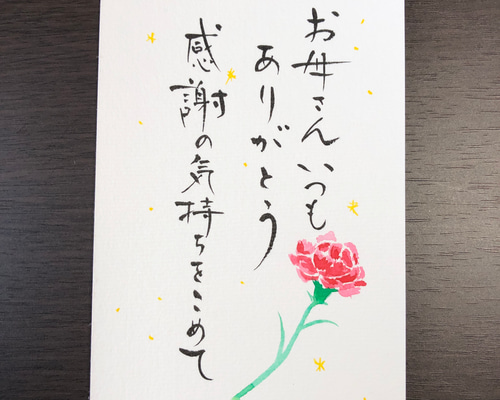 お母さんいつも
ありがとう
感謝の気持ちをこめて